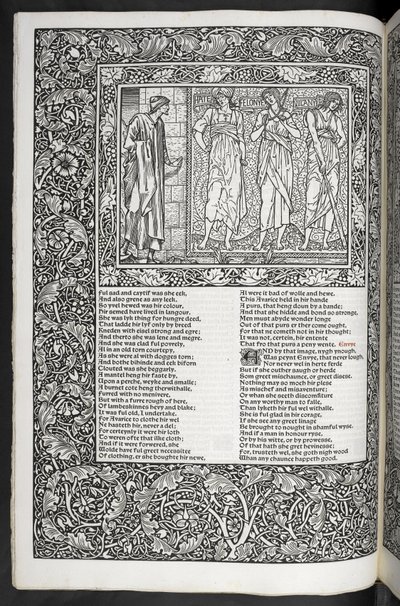 Ful sad and caytif was she eek,
And also grene as any leek.
So yvel hewed was hir colour,
Hir semed have lived in langour.
She was lyk thing for hungre deed,
That ladde hir lyf only by breed
Kneden with eisel strong and egre;
And therto she was lene and megre.
And she was clad ful povrely,
Al in an old torn courtepy,
As she were al with dogges torn;
And bothe bihinde and eek biforn
Clouted was she beggarly.
A mantel heng hir faste by,
Upon a perche, weyke and smalle;
A burnet cote heng therwithalle,
Furred with no menivere,
But with a furre rough of here,
Of lambeskinnes hevy and blake;
It was ful old, I undertake.
For Avarice to clothe hir wel
Ne hasteth hir, never a del;
For certeynly it were hir loth
To weren ofte that ilke cloth;
And if it were forwered, she
Wolde have ful greet necessitee
Of clothing, er she boughte hir newe,
Al were it bad of wolle and hewe.
This Avarice held in hir hande
A purs, that heng doun by a bande;
And that she hidde and bond so stronge,
Men must abyde wonder longe
Out of that purs er ther come ought,
For that ne cometh not in hir thought;
It was not, certein, hir entente
That fro that purs a peny wente. Envye
AND by that image, nygh ynough,
Was peynt Envye, that never lough,
Nor never wel in herte ferde
But if she outher saugh or herde
Som greet mischaunce, or greet disese.
Nothing may so moch hir plese
As mischef and misaventure;
Or whan she seeth discomfiture
On any worthy man to falle,
Than lyketh hir ful wel withalle.
She is ful glad in hir corage,
If she see any greet linage
Be brought to nought in shamful wyse.
And if a man in honour ryse,
Or by his witte, or by prowesse,
Of that hath she gret hevinesse;
For, trusteth wel, she goth nigh wood
Whan any chaunce happeth good.